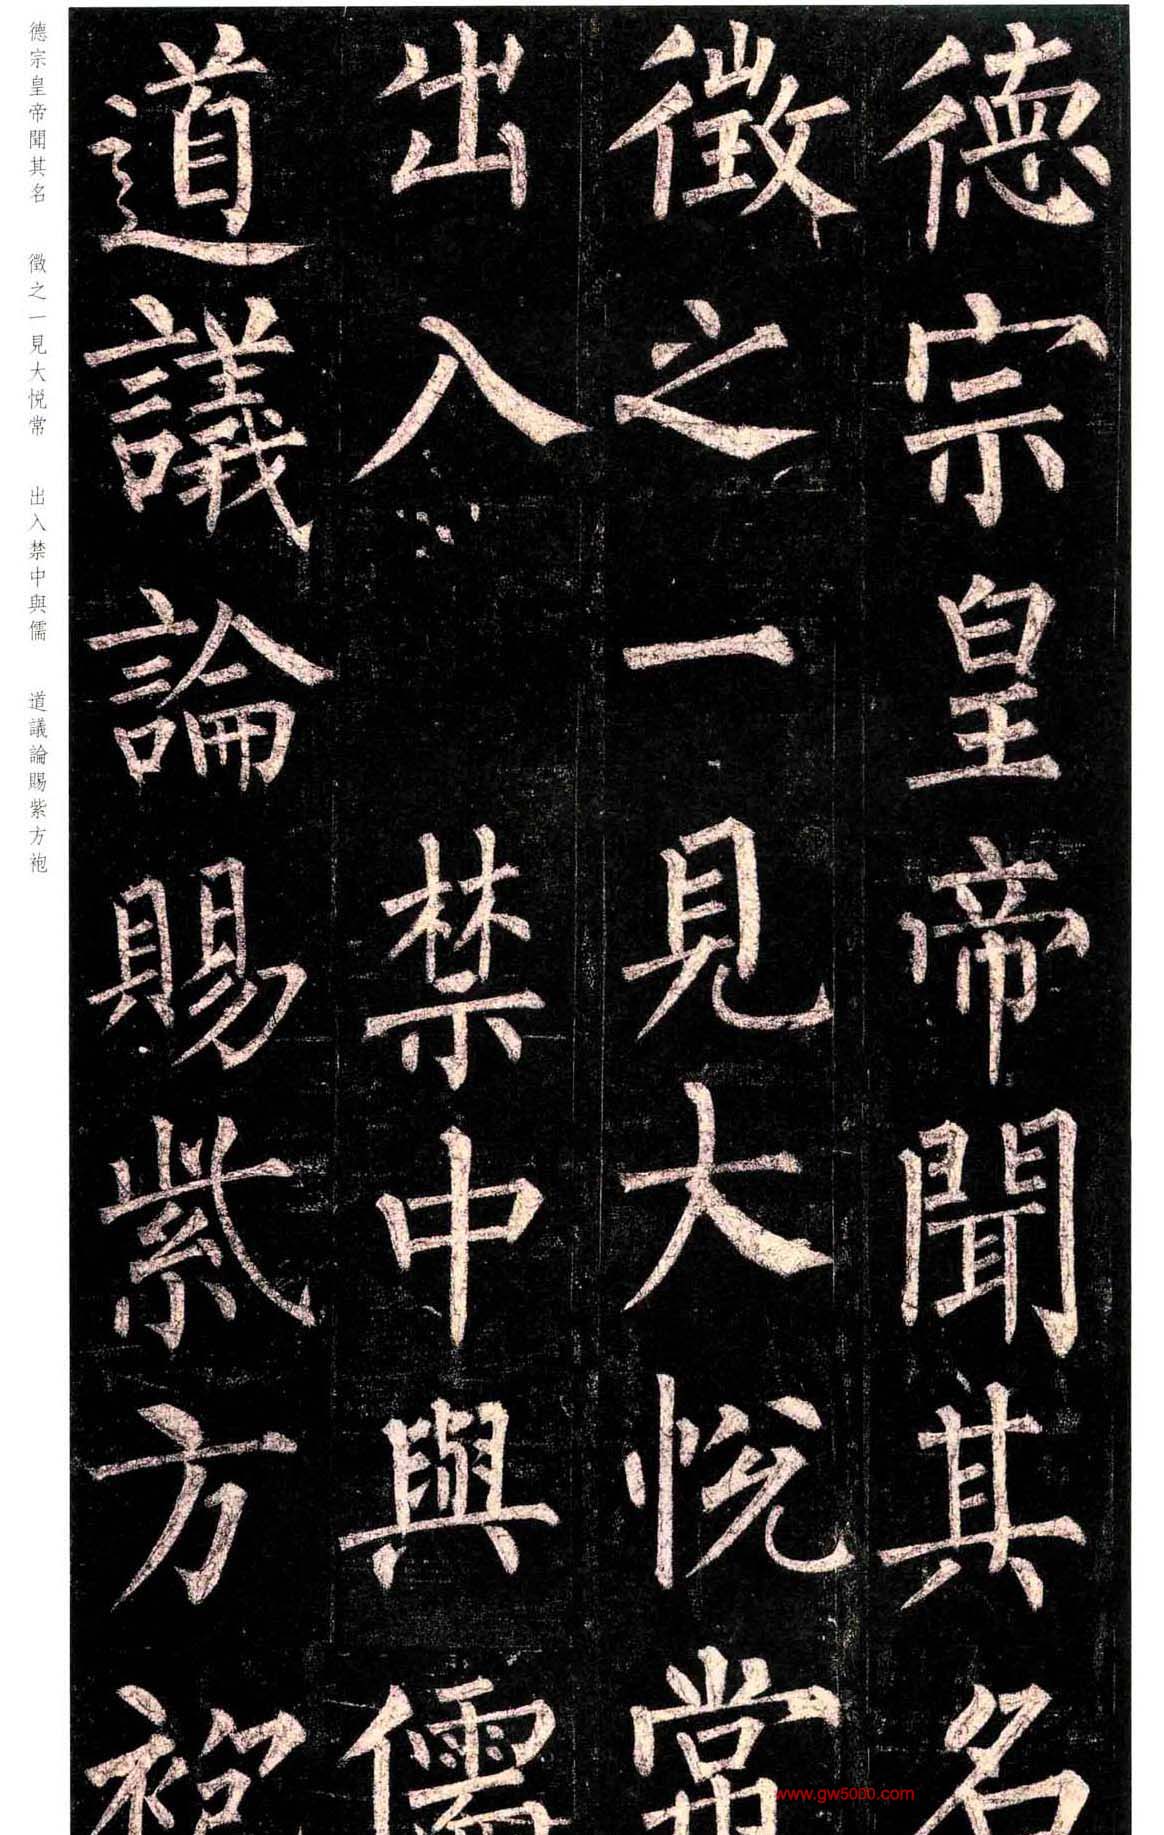 德宗皇帝聞其名
徵之一見大悅常
出入禁中與儒
道議論賜紫方袍
德宗皇帝聞其名　徵之一見大悅常　出入禁中與儒　道議論賜紫方袍
www.gw5000.com